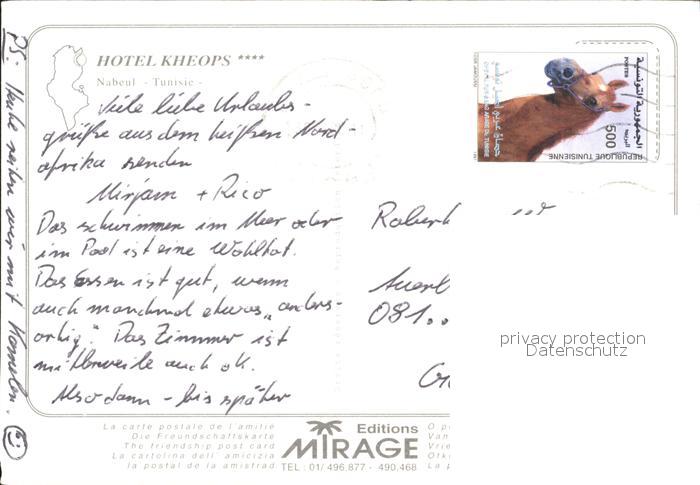 HOTEL KHEOPS ****
Nabeul - Tunisie -
Viele liebe Urlaubs-
grüße aus dem heißen Nord-
afrika senden
Mirjam + Rico
Das schwimmen im Meer oder
im Pool ist eine Wohltat.
Das Essen ist gut, wenn
auch manchmal etwas „anders-
artig". Das Zimmer ist
mittlerweile auch ok.
Also dann - bis später
PS: Heute reiten wir mit Kamelen.
الجمهورية التونسية
POSTES
البريد
500
REPUBLIQUE TUNISIENNE
Robert
Auerb
081..
privacy protection
Datenschutz
La carte postale de l'amitié
Die Freundschaftskarte
The friendship post card
La cartolina dell' amicizia
la postal de la amistad
Editions
MIRAGE
TEL : 01/ 496.877 - 490.468